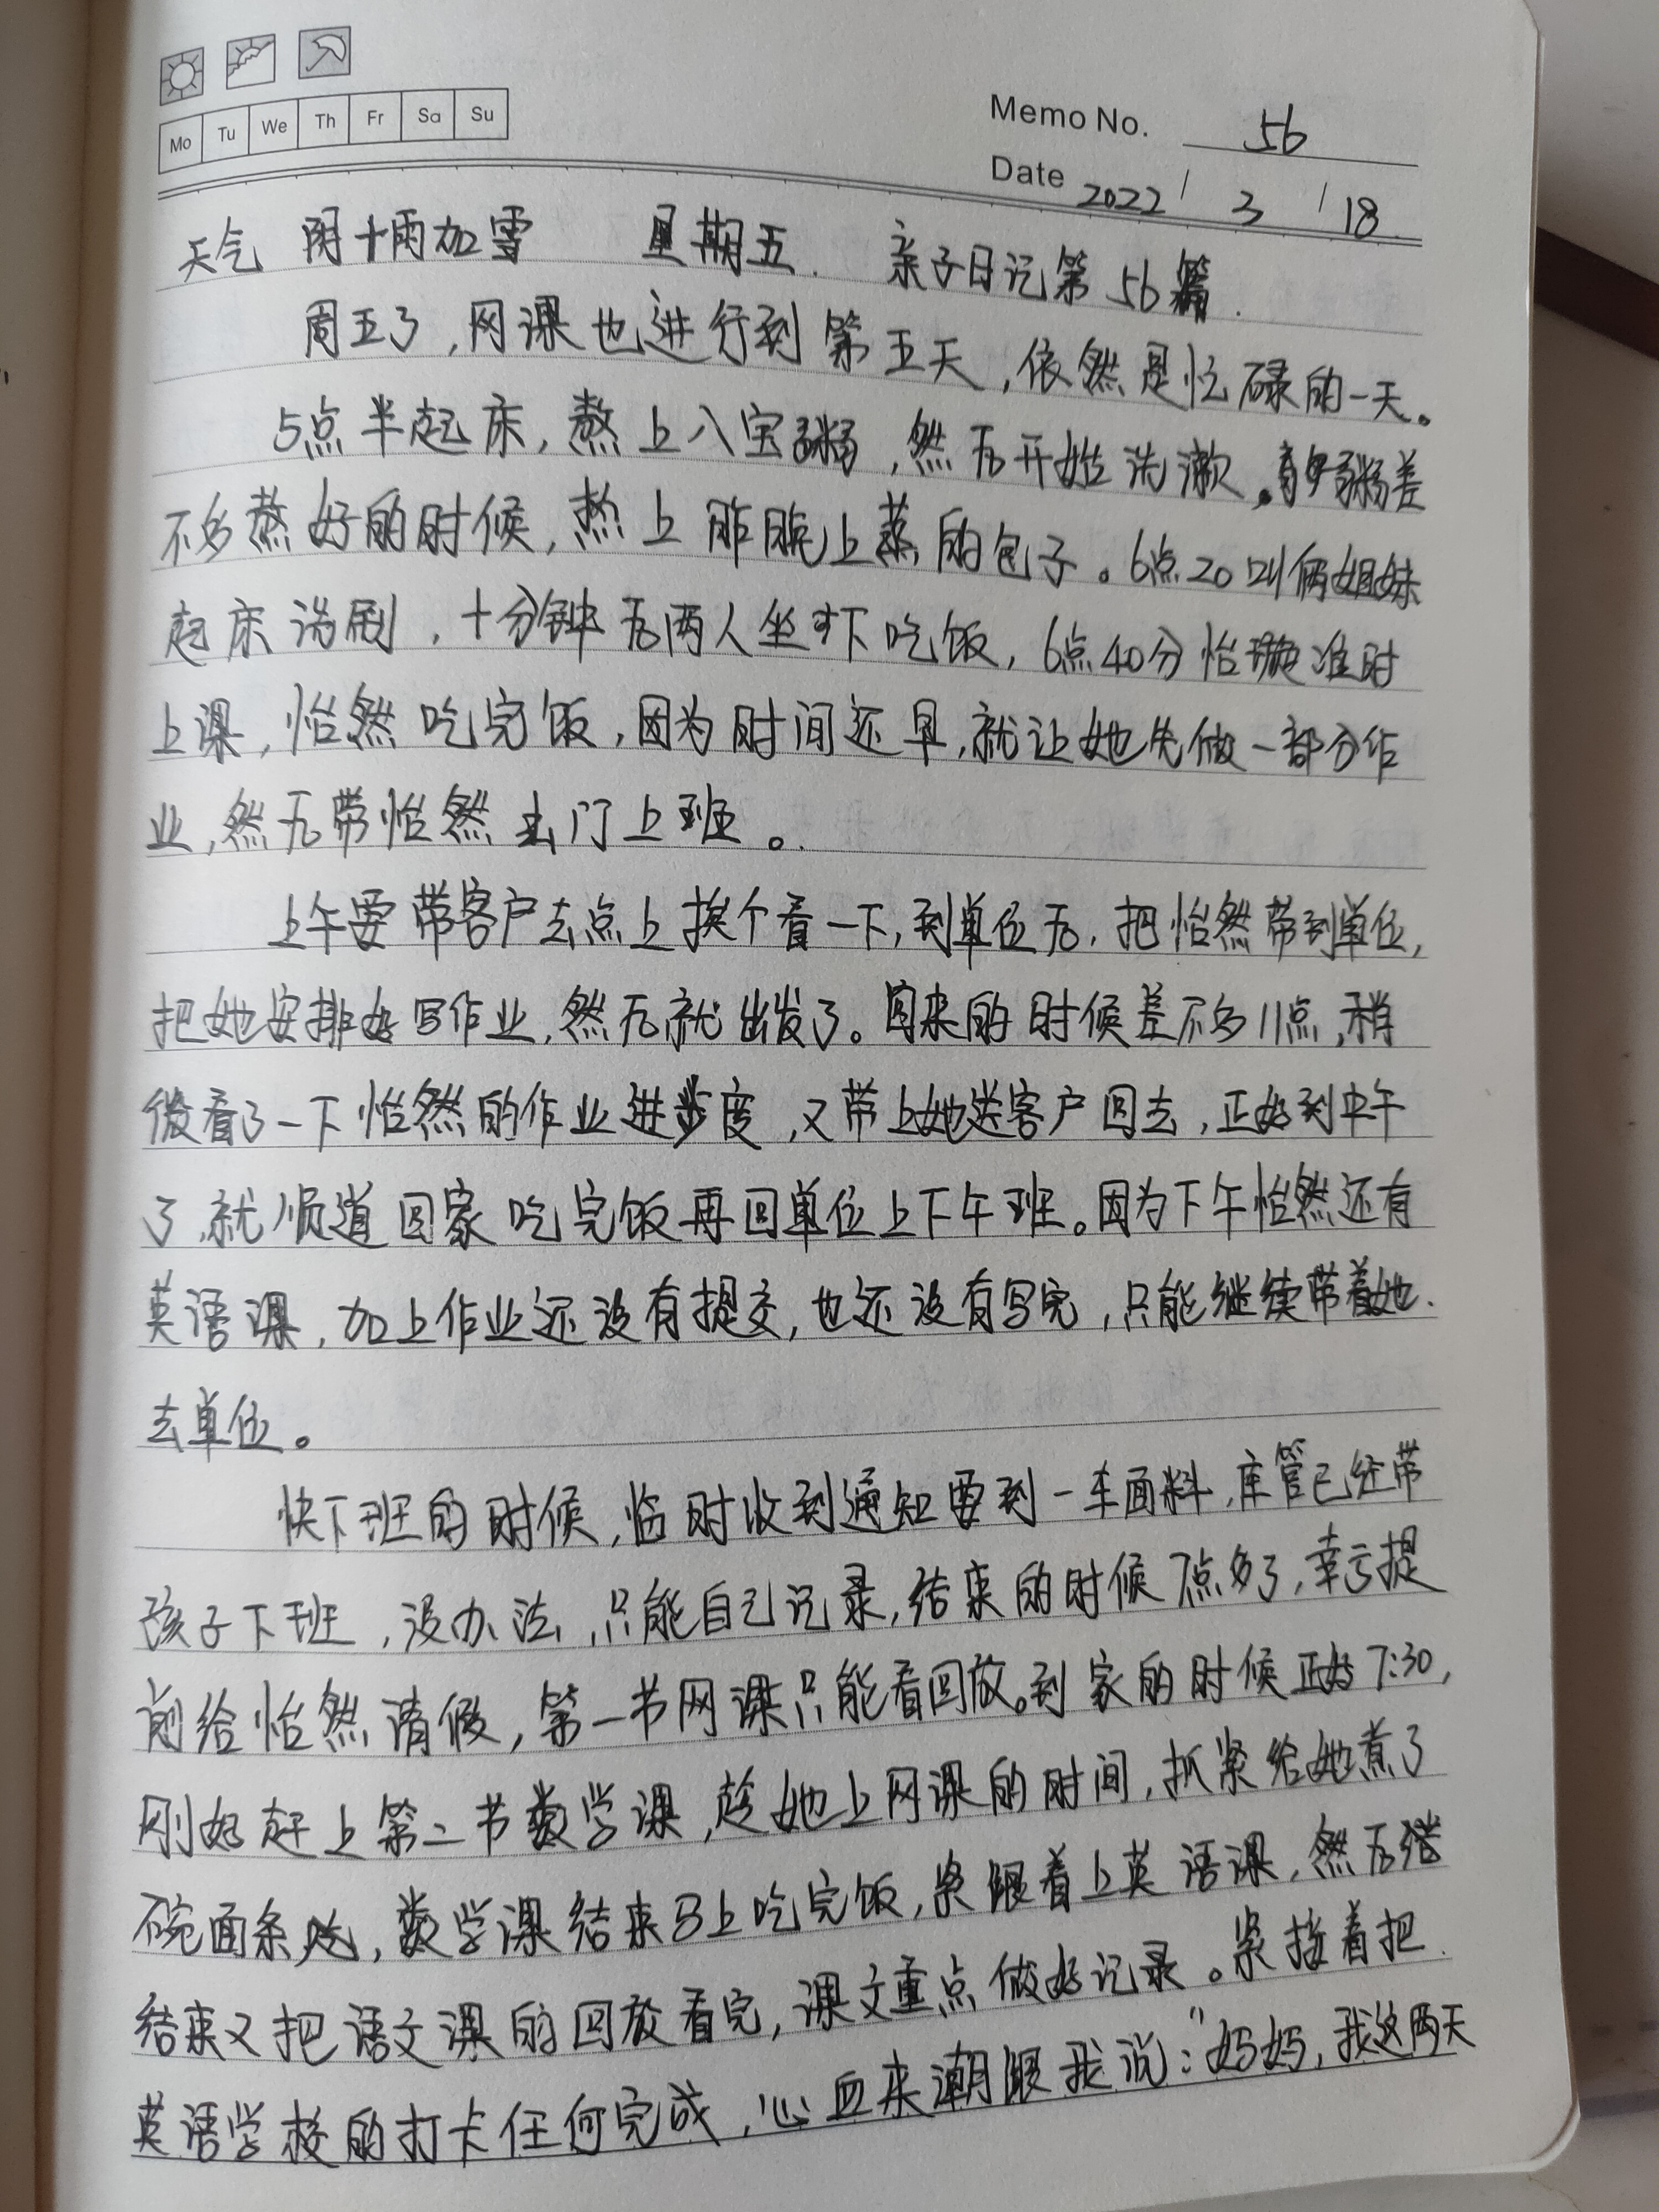 Mo Tu We Th Fr Sa Su
Memo No. 56
Date 2022 / 3 / 18
天气 阴+雨加雪 星期五. 亲子日记第56篇.
周五了,网课也进行到第五天,依然是忙碌的一天。
5点半起床,熬上八宝粥,然后开始洗漱。粥差
不多熬好的时候,热上昨晚上蒸的包子。6点20叫俩姐妹
起床洗刷,十分钟后两人坐下吃饭,6点40分怡璇准时
上课,怡然吃完饭,因为时间还早,就让她先做一部分作
业,然后带怡然出门上班。
上午要带客户去点上挨个看一下,到单位后,把怡然带到单位,
把她安排好写作业,然后就出发了。回来的时候差不多11点,稍
微看了一下怡然的作业进度,又带上她送客户回去,正好到中午
了,就顺道回家吃完饭再回单位上下午班。因为下午怡然还有
英语课,加上作业还没有提交,也还没有写完,只能继续带着她.
去单位。
快下班的时候,临时收到通知要到一车面料,库管已经带
孩子下班,没办法,只能自己记录,结束的时候7点多了,幸亏提
前给怡然请假,第一节网课只能看回放。到家的时候正好7:30,
刚好赶上第二节数学课,趁她上网课的时间,抓紧给她煮了
碗面条吃,数学课结束马上吃完饭,紧跟着上英语课,然后
结束又把语文课的回放看完,课文重点做好记录。紧接着把
英语学校的打卡任何完成,心血来潮跟我说:"妈妈,我这两天